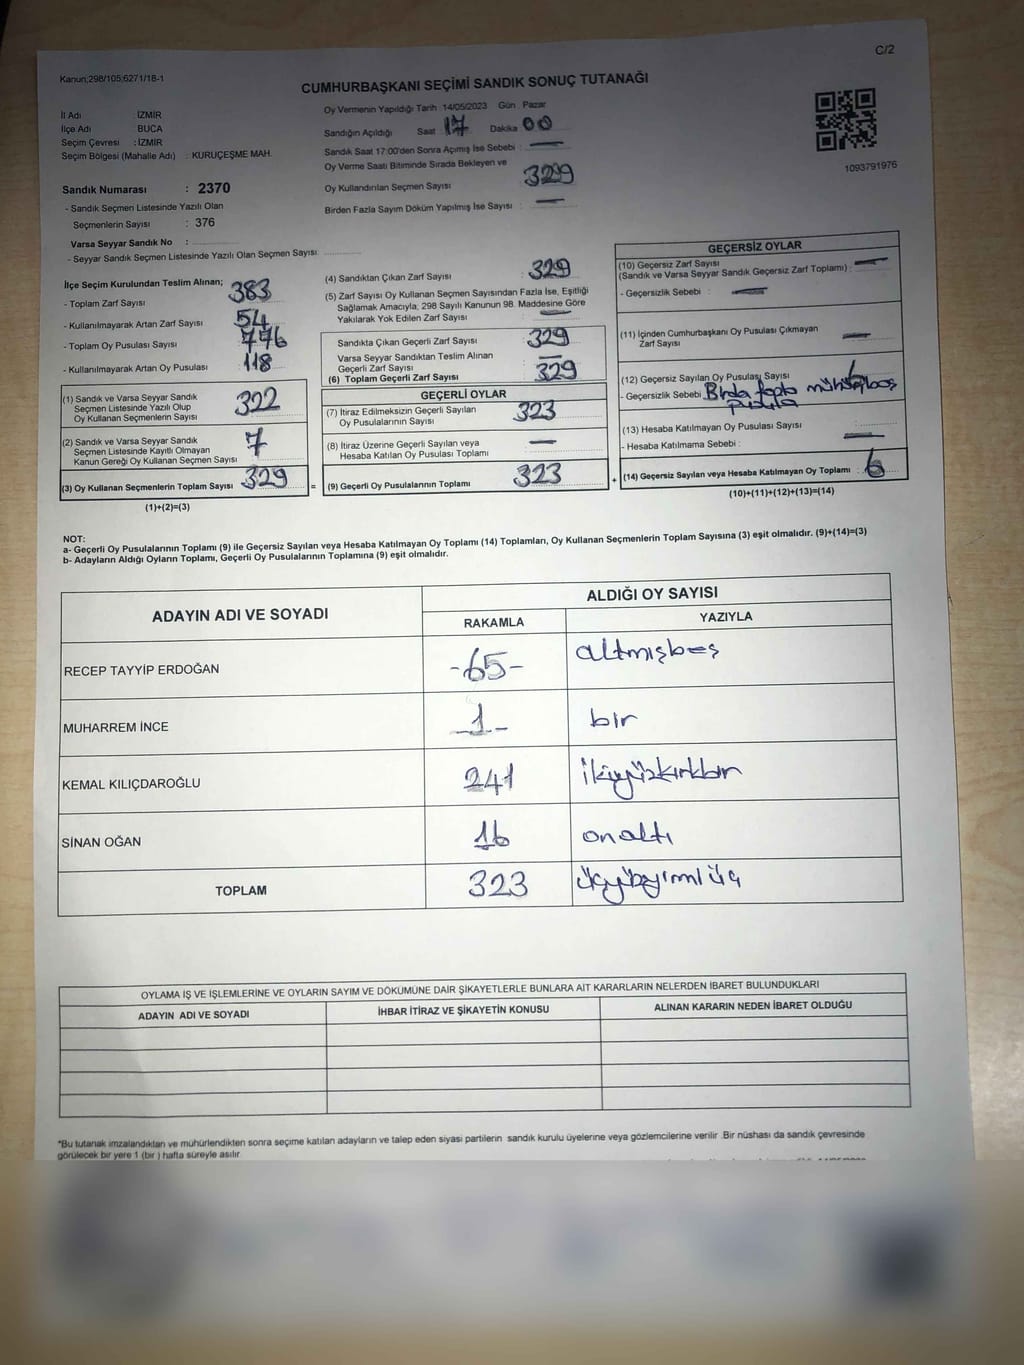 C/2
Kanun;298/105;6271/18-1
CUMHURBAŞKANI SEÇİMİ SANDIK SONUÇ TUTANAĞI
İl Adı İZMİR
İlçe Adı BUCA
Seçim Çevresi : İZMİR
Seçim Bölgesi (Mahalle Adı) : KURUÇEŞME MAH.
Sandık Numarası : 2370
- Sandık Seçmen Listesinde Yazılı Olan
Seçmenlerin Sayısı : 376
Varsa Seyyar Sandık No :
- Seyyar Sandık Seçmen Listesinde Yazılı Olan Seçmen Sayısı:
Oy Vermenin Yapıldığı Tarih 14/05/2023 Gün Pazar
Sandığın Açıldığı Saat 17 Dakika 00
Sandık Saat 17:00'den Sonra Açımış İse Sebebi : —
Oy Verme Saati Bitiminde Sırada Bekleyen ve
Oy Kullandırılan Seçmen Sayısı 329
Birden Fazla Sayım Döküm Yapılmış İse Sayısı : —
1093791976
İlçe Seçim Kurulundan Teslim Alınan;
- Toplam Zarf Sayısı 383
- Kullanılmayarak Artan Zarf Sayısı 54
- Toplam Oy Pusulası Sayısı 776
- Kullanılmayarak Artan Oy Pusulası 118
(1) Sandık ve Varsa Seyyar Sandık
Seçmen Listesinde Yazılı Olup
Oy Kullanan Seçmenlerin Sayısı 322
(2) Sandık ve Varsa Seyyar Sandık
Seçmen Listesinde Kayıtlı Olmayan
Kanun Gereği Oy Kullanan Seçmen Sayısı 7
(3) Oy Kullanan Seçmenlerin Toplam Sayısı 329
(1)+(2)=(3)
(4) Sandıktan Çıkan Zarf Sayısı : 329
(5) Zarf Sayısı Oy Kullanan Seçmen Sayısından Fazla İse, Eşitliği
Sağlamak Amacıyla; 298 Sayılı Kanunun 98. Maddesine Göre
Yakılarak Yok Edilen Zarf Sayısı : —
Sandıkta Çıkan Geçerli Zarf Sayısı 329
Varsa Seyyar Sandıktan Teslim Alınan
Geçerli Zarf Sayısı —
(6) Toplam Geçerli Zarf Sayısı 329
GEÇERLİ OYLAR
(7) İtiraz Edilmeksizin Geçerli Sayılan
Oy Pusulalarının Sayısı 323
(8) İtiraz Üzerine Geçerli Sayılan veya
Hesaba Katılan Oy Pusulası Toplamı —
= (9) Geçerli Oy Pusulalarının Toplamı 323
GEÇERSİZ OYLAR
(10) Geçersiz Zarf Sayısı
(Sandık ve Varsa Seyyar Sandık Geçersiz Zarf Toplamı) : —
- Geçersizlik Sebebi : —
(11) İçinden Cumhurbaşkanı Oy Pusulası Çıkmayan
Zarf Sayısı —
(12) Geçersiz Sayılan Oy Pusulası Sayısı 6
- Geçersizlik Sebebi
pusula
(13) Hesaba Katılmayan Oy Pusulası Sayısı
- Hesaba Katılmama Sebebi : —
+ (14) Geçersiz Sayılan veya Hesaba Katılmayan Oy Toplamı : 6
(10)+(11)+(12)+(13)=(14)
NOT:
a- Geçerli Oy Pusulalarının Toplamı (9) ile Geçersiz Sayılan veya Hesaba Katılmayan Oy Toplamı (14) Toplamları, Oy Kullanan Seçmenlerin Toplam Sayısına (3) eşit olmalıdır. (9)+(14)=(3)
b- Adayların Aldığı Oyların Toplamı, Geçerli Oy Pusulalarının Toplamına (9) eşit olmalıdır.
ADAYIN ADI VE SOYADI ALDIĞI OY SAYISI
RAKAMLA YAZIYLA
RECEP TAYYİP ERDOĞAN -65- altmışbeş
MUHARREM İNCE -1- bir
KEMAL KILIÇDAROĞLU 241 ikiyüzkırkbir
SİNAN OĞAN 16 onaltı
TOPLAM 323 üçyüzyirmi üç
OYLAMA İŞ VE İŞLEMLERİNE VE OYLARIN SAYIM VE DÖKÜMÜNE DAİR ŞİKAYETLERLE BUNLARA AİT KARARLARIN NELERDEN İBARET BULUNDUKLARI
ADAYIN ADI VE SOYADI İHBAR İTİRAZ VE ŞİKAYETİN KONUSU ALINAN KARARIN NEDEN İBARET OLDUĞU
*Bu tutanak imzalandıktan ve mühürlendikten sonra seçime katılan adayların ve talep eden siyasi partilerin sandık kurulu üyelerine veya gözlemcilerine verilir .Bir nüshası da sandık çevresinde
görülecek bir yere 1 (bir ) hafta süreyle asılır.